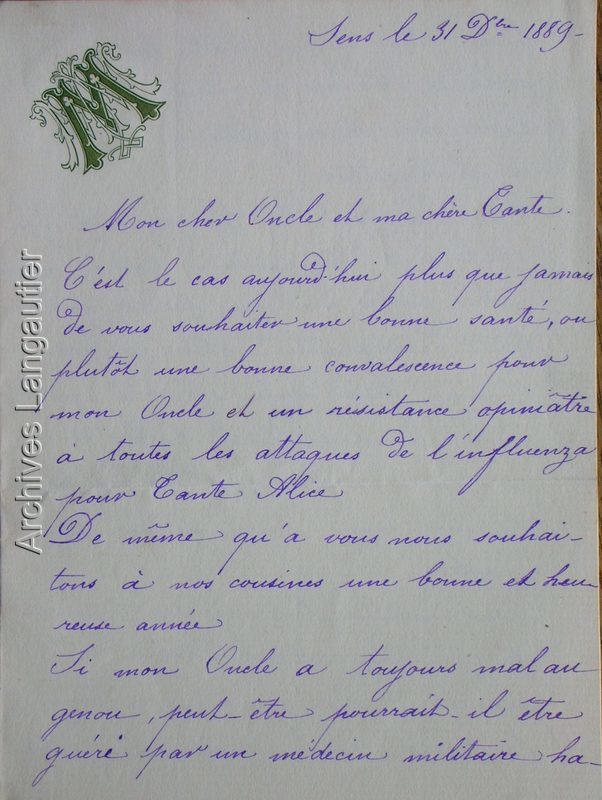 Sens le 31 Dbre 1889-
M
Mon cher Oncle et ma chère Tante.
C'est le cas aujourd'hui plus que jamais
de vous souhaiter une bonne santé, ou
plutôt une bonne convalescence pour
mon Oncle et un résistance opiniâtre
à toutes les attaques de l'influenza
pour Tante Alice
De même qu'a vous nous souhai-
tons à nos cousines une bonne et heu-
reuse année
Si mon Oncle a toujours mal au
genou, peut-être pourrait-il être
guéri par un médecin militaire ha-
Archives Langautier